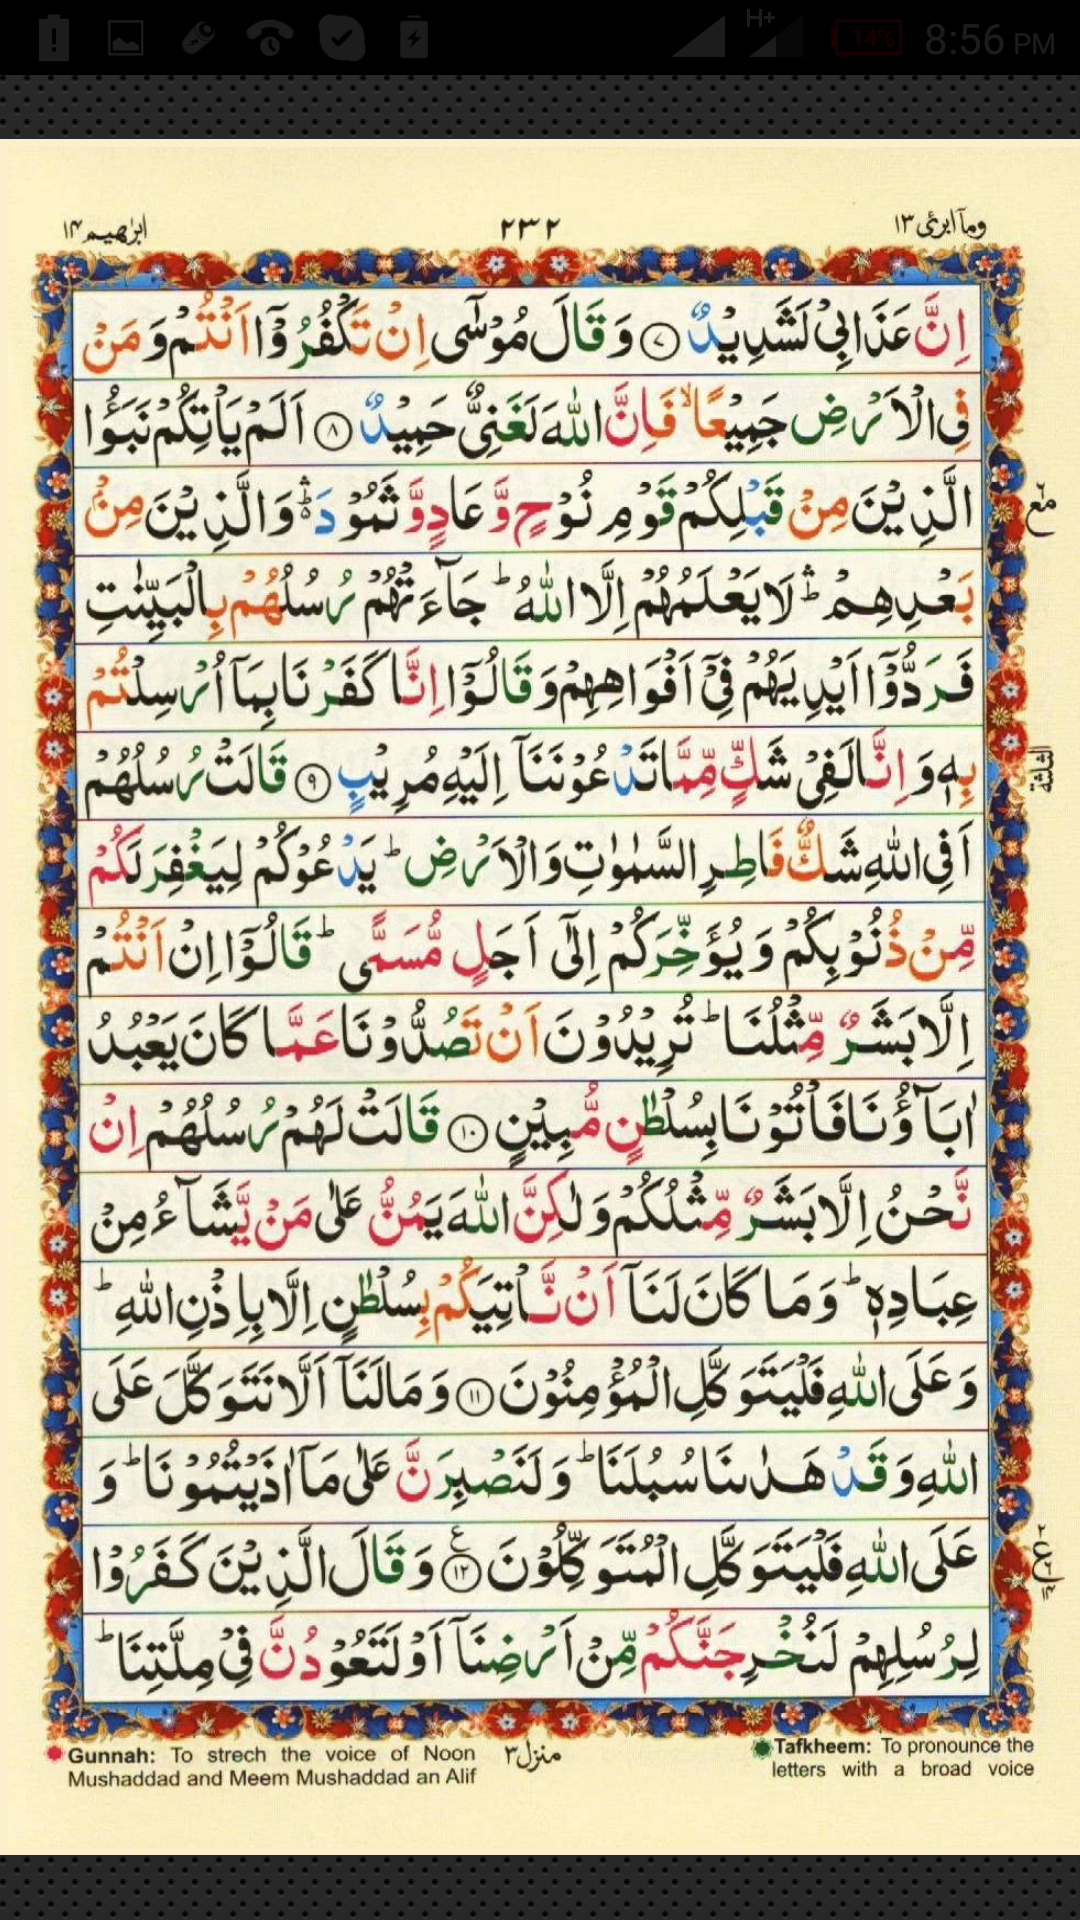 H+
14%
8:56 PM
وما ابرئ ١٣
٢٣٢
ابرٰهيم ١٤
اِنَّ عَذَابِیْ لَشَدِیْدٌ ٧ وَقَالَ مُوْسٰۤی اِنْ تَكْفُرُوْۤا اَنْتُمْ وَمَنْ
فِی الْاَرْضِ جَمِیْعًا ۙ فَاِنَّ اللّٰهَ لَغَنِیٌّ حَمِیْدٌ ٨ اَلَمْ یَاْتِكُمْ نَبَؤُا
الَّذِیْنَ مِنْ قَبْلِكُمْ قَوْمِ نُوْحٍ وَّ عَادٍ وَّ ثَمُوْدَ ۛ۬ وَالَّذِیْنَ مِنْۢ
مع
بَعْدِهِمْ ۛؕ لَا یَعْلَمُهُمْ اِلَّا اللّٰهُ ؕ جَآءَتْهُمْ رُسُلُهُمْ بِالْبَیِّنٰتِ
فَرَدُّوْۤا اَیْدِیَهُمْ فِیْۤ اَفْوَاهِهِمْ وَقَالُوْۤا اِنَّا كَفَرْنَا بِمَاۤ اُرْسِلْتُمْ
بِهٖ وَاِنَّا لَفِیْ شَكٍّ مِّمَّا تَدْعُوْنَنَاۤ اِلَیْهِ مُرِیْبٍ ٩ قَالَتْ رُسُلُهُمْ
الثلثة
اَفِی اللّٰهِ شَكٌّ فَاطِرِ السَّمٰوٰتِ وَالْاَرْضِ ؕ یَدْعُوْكُمْ لِیَغْفِرَ لَكُمْ
مِّنْ ذُنُوْبِكُمْ وَیُؤَخِّرَكُمْ اِلٰۤی اَجَلٍ مُّسَمًّی ؕ قَالُوْۤا اِنْ اَنْتُمْ
اِلَّا بَشَرٌ مِّثْلُنَا ؕ تُرِیْدُوْنَ اَنْ تَصُدُّوْنَا عَمَّا كَانَ یَعْبُدُ
اٰبَآؤُنَا فَاْتُوْنَا بِسُلْطٰنٍ مُّبِیْنٍ ١٠ قَالَتْ لَهُمْ رُسُلُهُمْ اِنْ
نَّحْنُ اِلَّا بَشَرٌ مِّثْلُكُمْ وَلٰكِنَّ اللّٰهَ یَمُنُّ عَلٰی مَنْ یَّشَآءُ مِنْ
عِبَادِهٖ ؕ وَمَا كَانَ لَنَاۤ اَنْ نَّاْتِیَكُمْ بِسُلْطٰنٍ اِلَّا بِاِذْنِ اللّٰهِ ؕ
وَعَلَی اللّٰهِ فَلْیَتَوَكَّلِ الْمُؤْمِنُوْنَ ١١ وَمَا لَنَاۤ اَلَّا نَتَوَكَّلَ عَلَی
اللّٰهِ وَقَدْ هَدٰىنَا سُبُلَنَا ؕ وَلَنَصْبِرَنَّ عَلٰی مَاۤ اٰذَیْتُمُوْنَا ؕ وَ
عَلَی اللّٰهِ فَلْیَتَوَكَّلِ الْمُتَوَكِّلُوْنَ ١٢ وَقَالَ الَّذِیْنَ كَفَرُوْا
ع
لِرُسُلِهِمْ لَنُخْرِجَنَّكُمْ مِّنْ اَرْضِنَاۤ اَوْ لَتَعُوْدُنَّ فِیْ مِلَّتِنَا ؕ
Gunnah: To strech the voice of Noon
Mushaddad and Meem Mushaddad an Alif
منزل ٣
Tafkheem: To pronounce the
letters with a broad voice